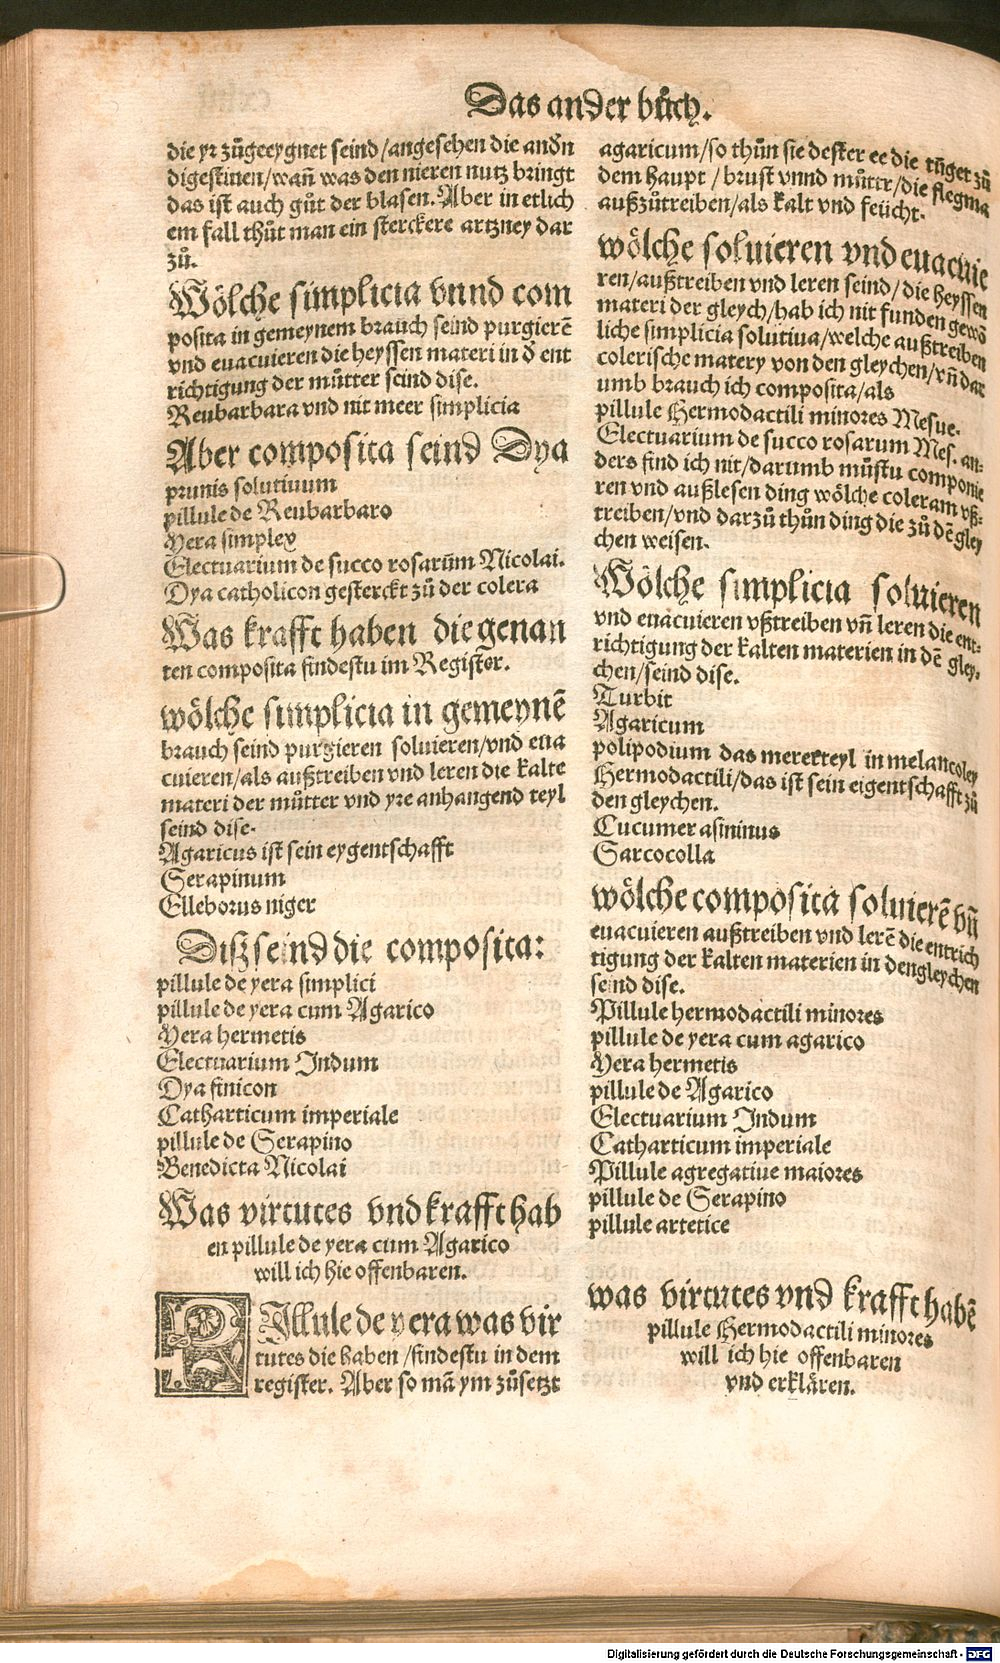 Das ander bůch.
die yr zůgeeygnet seind/angesehen die andn̄
digestiuen/wañ was den nieren nutz bringt
das ist auch gůt der blasen. Aber in etlich
em fall thůt man ein sterckere artzney dar
zů.
Wölche simplicia vnnd com
posita in gemeynem brauch seind purgierē
vnd euacuieren die heyssen materi in d̄ ent
richtigung der můtter seind dise.
Reubarbara vnd nit meer simplicia
Aber composita seind Dya
prunis solutiuum
pillule de Reubarbaro
Yera simplex
Electuarium de succo rosarūm Nicolai.
Dya catholicon gesterckt zů der colera
Was krafft haben die genan
ten composita findestu im Register.
wölche simplicia in gemeynē
brauch seind purgieren soluieren/vnd eua
cuieren/als außtreiben vnd leren die kalte
materi der můtter vnd yre anhangend teyl
seind dise.
Agaricus ist sein eygentschafft
Serapinum
Elleborus niger
Diß seind die composita:
pillule de yera simplici
pillule de yera cum Agarico
Yera hermetis
Electuarium Indum
Dya finicon
Catharticum imperiale
pillule de Serapino
Benedicta Nicolai
Was virtutes vnd krafft hab
en pillule de yera cum Agarico
will ich hie offenbaren.
PIllule de yera was vir
tutes die haben/findestu in dem
register. Aber so mā ym zůsetzt
agaricum/so thůn sie dester ee die tüget zů
dem haupt/brust vnnd můttr/die flegma
außzůtreiben/als kalt vnd feücht.
wölche soluieren vnd euacuie
ren/außtreiben vnd leren seind/die heyssen
materi der gleych/hab ich nit funden gewō
liche simplicia solutiua/welche außtreiben
colerische matery von den gleychen/vñ dar
umb brauch ich composita/als
pillule Hermodactili minores Mesue.
Electuarium de succo rosarum Mes. an-
ders find ich nit/darumb můstu componie
ren vnd außlesen ding wölche coleram vß-
treiben/vnd darzů thůn ding die zů dē gley
chen weisen.
Wölche simplicia soluieren
vnd euacuieren vßtreiben vñ leren die ent-
richtigung der kalten materien in dē gley-
chen/seind dise.
Turbit
Agaricum
polipodium das mererteyl in melancoley
Hermodactili/das ist sein eigentschafft zů
den gleychen.
Cucumer asininus
Sarcocolla
wölche composita soluierē vñ
euacuieren außtreiben vnd lerē die entrich
tigung der kalten materien in den gleychen
seind dise.
Pillule hermodactili minores
pillule de yera cum agarico
Yera hermetis
pillule de Agarico
Electuarium Indum
Catharticum imperiale
Pillule agregatiue maiores
pillule de Serapino
pillule artetice
was virtutes vnd krafft habē
pillule Hermodactili minores
will ich hie offenbaren
vnd erklären.
Digitalisierung gefördert durch die Deutsche Forschungsgemeinschaft - DFG